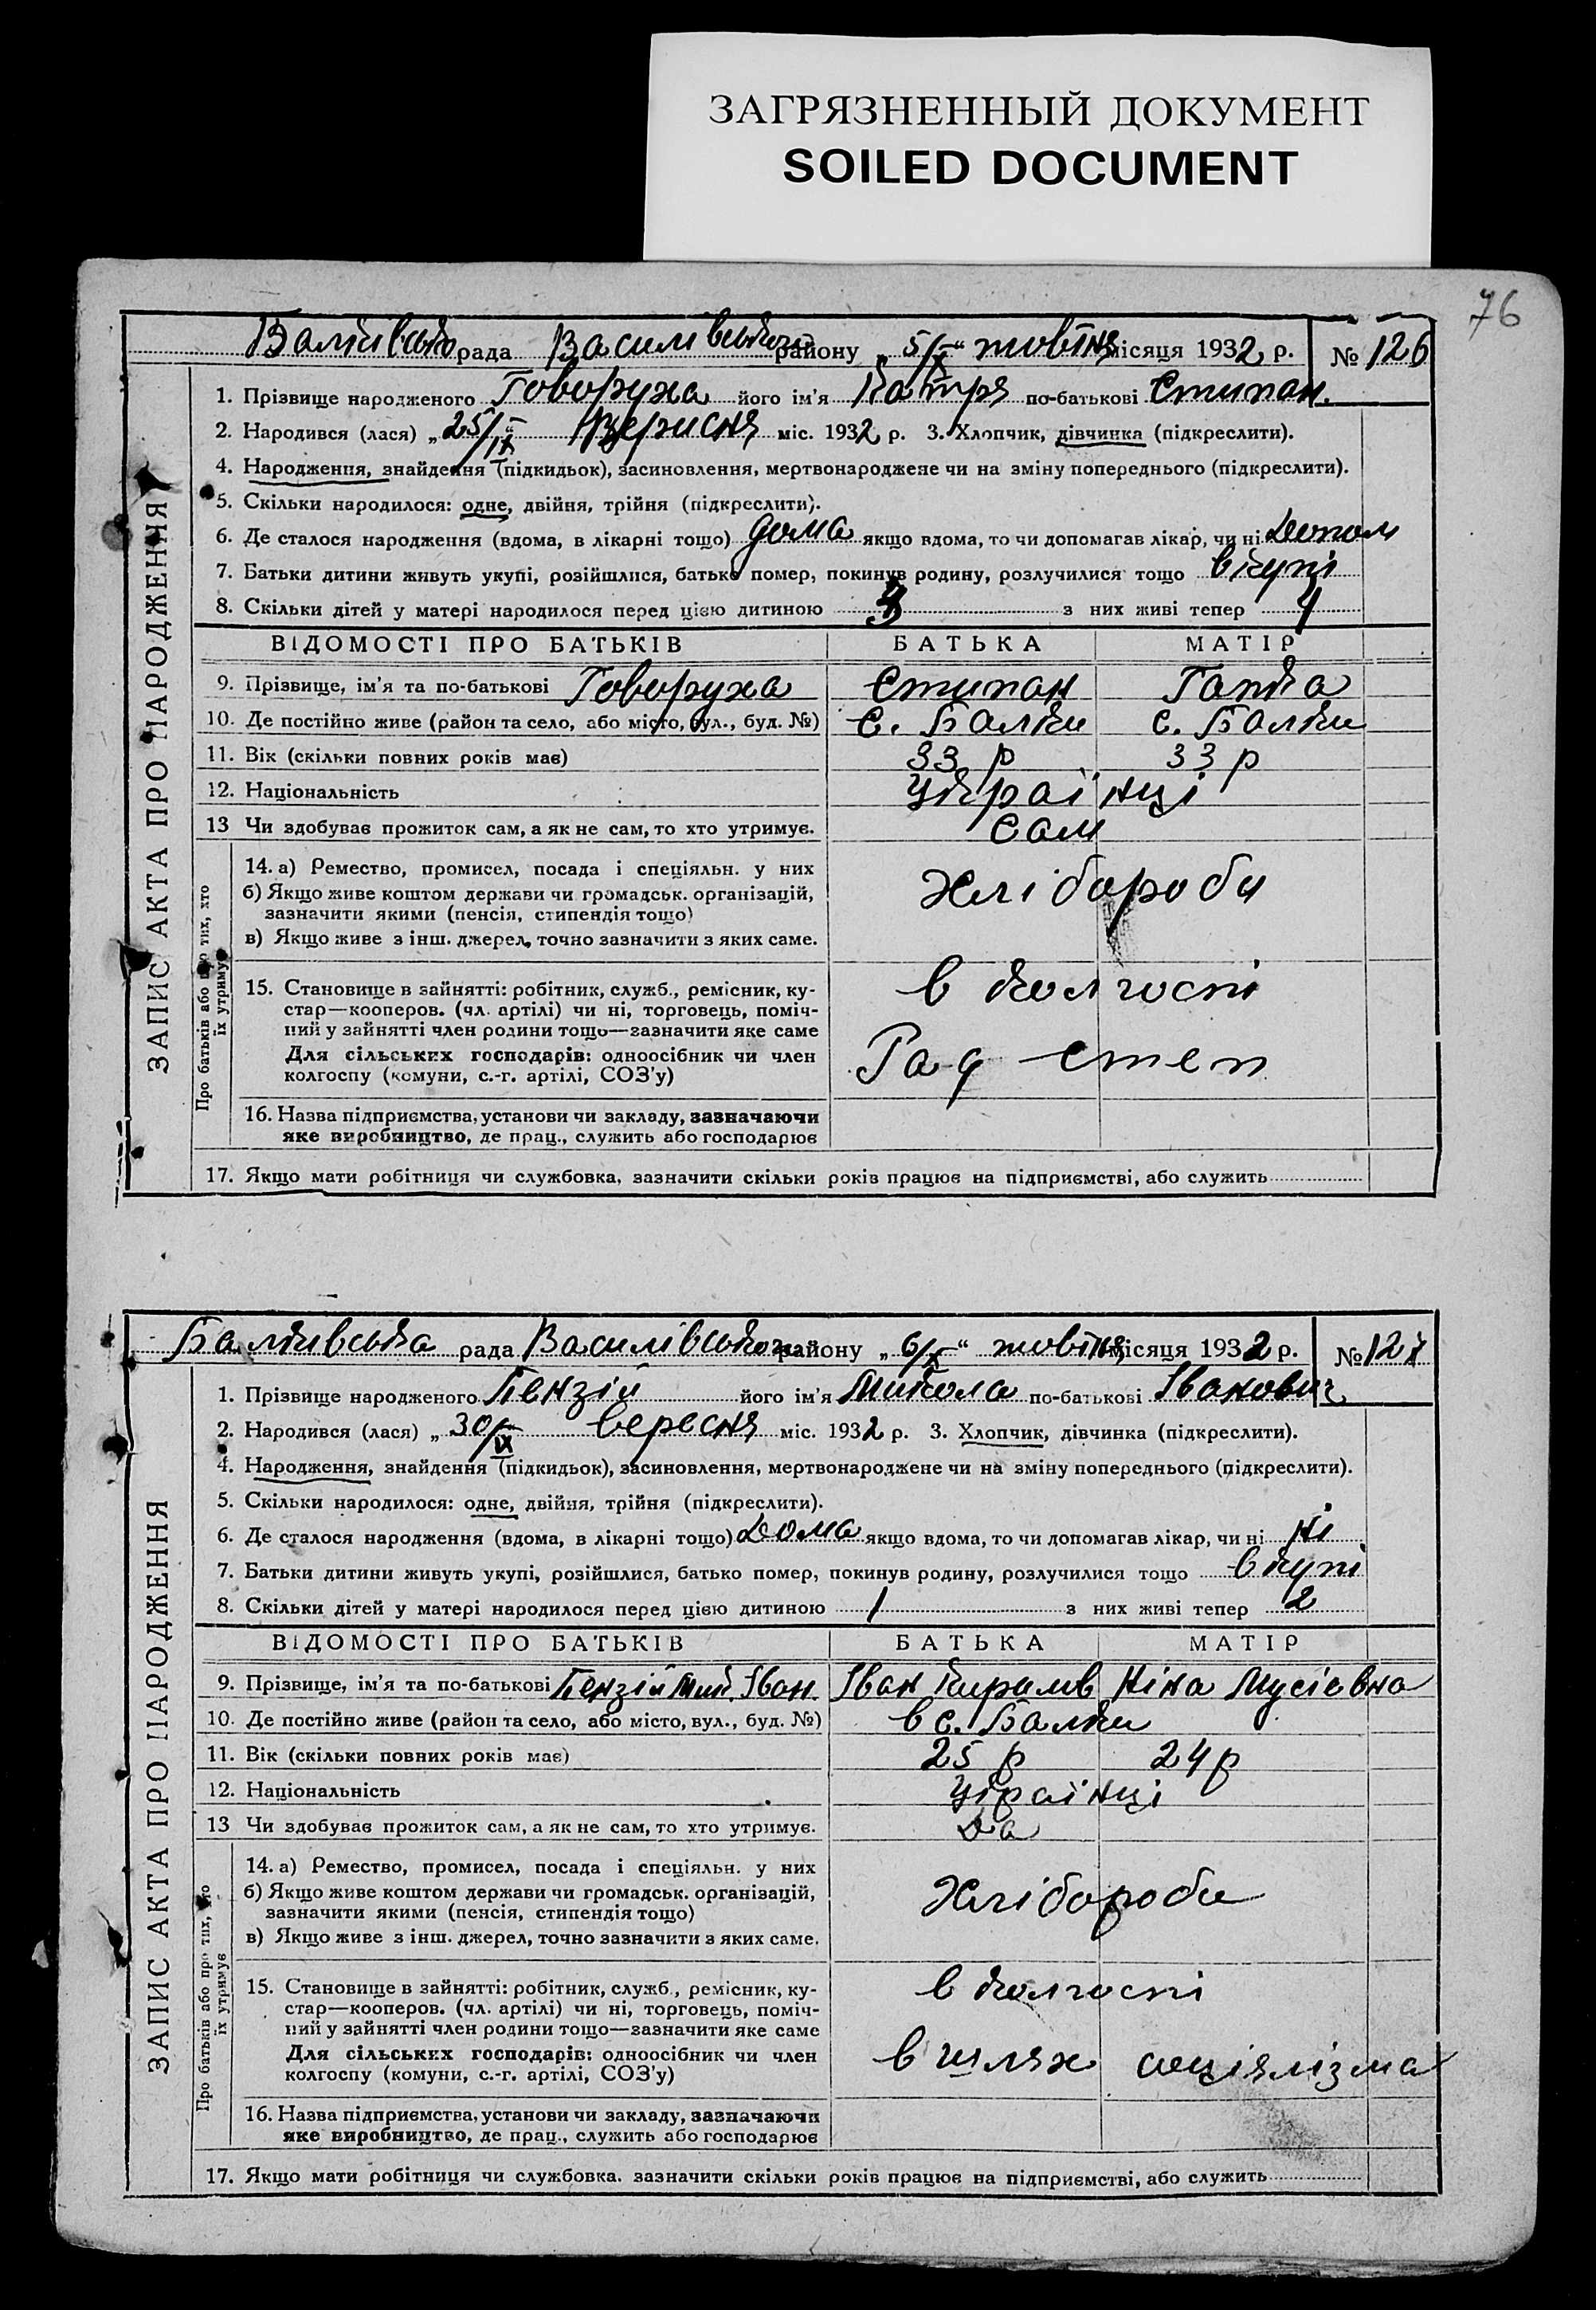 ЗАГРЯЗНЕННЫЙ ДОКУМЕНТ
SOILED DOCUMENT
76
ЗАПИС АКТА ПРО НАРОДЖЕННЯ
Балківсько рада Василівського району „5/X“ жовтня місяця 1932 р. № 126
1. Прізвище народженого Говоруха його ім'я Катря по-батькові Стипан.
2. Народився (лася) „25/IX“ Вересня міс. 1932 р. 3. Хлопчик, дівчинка (підкреслити).
4. Народження, знайдення (підкидьок), засиновлення, мертвонароджене чи на зміну попереднього (підкреслити).
5. Скільки народилося: одне, двійня, трійня (підкреслити).
6. Де сталося народження (вдома, в лікарні тощо) дома якщо вдома, то чи допомагав лікар, чи ні
7. Батьки дитини живуть укупі, розійшлися, батько помер, покинув родину, розлучилися тощо вкупі
8. Скільки дітей у матері народилося перед цією дитиною 3 з них живі тепер 4
ВІДОМОСТІ ПРО БАТЬКІВ БАТЬКА МАТІР
9. Прізвище, ім'я та по-батькові Говоруха Стипан Гапка
10. Де постійно живе (район та село, або місто, вул., буд. №) с. Балки с. Балки
11. Вік (скільки повних років має) 33 р 33 р
12. Національність Українці
13 Чи здобуває прожиток сам, а як не сам, то хто утримує. Сам
Про батьків або про тих, хто їх утримує
14. а) Ремество, промисел, посада і спеціяльн. у них
б) Якщо живе коштом держави чи громадськ. організацій,
зазначити якими (пенсія, стипендія тощо)
в) Якщо живе з інш. джерел, точно зазначити з яких саме.
Хлібороби
15. Становище в зайнятті: робітник, служб., ремісник, ку-
стар—кооперов. (чл. артілі) чи ні, торговець, поміч-
ний у зайнятті член родини тощо—зазначити яке саме
Для сільських господарів: одноосібник чи член
колгоспу (комуни, с.-г. артілі, СОЗ'у)
в колгоспі
Рад степ
16. Назва підприємства, установи чи закладу, зазначаючи
яке виробництво, де прац., служить або господарює
17. Якщо мати робітниця чи службовка, зазначити скільки років працює на підприємстві, або служить
ЗАПИС АКТА ПРО НАРОДЖЕННЯ
Балківська рада Василівського району „6/X“ жовтня місяця 1932 р. № 127
1. Прізвище народженого Пензій його ім'я Микола по-батькові Іванович
2. Народився (лася) „30/IX вересня міс. 1932 р. 3. Хлопчик, дівчинка (підкреслити).
4. Народження, знайдення (підкидьок), засиновлення, мертвонароджене чи на зміну попереднього (підкреслити).
5. Скільки народилося: одне, двійня, трійня (підкреслити).
6. Де сталося народження (вдома, в лікарні тощо) Дома якщо вдома, то чи допомагав лікар, чи ні Ні
7. Батьки дитини живуть укупі, розійшлися, батько помер, покинув родину, розлучилися тощо вкупі
8. Скільки дітей у матері народилося перед цією дитиною 1 з них живі тепер 2
ВІДОМОСТІ ПРО БАТЬКІВ БАТЬКА МАТІР
9. Прізвище, ім'я та по-батькові Пензій Мик. Іван. Іван Кирилов Ніна Мусієвна
10. Де постійно живе (район та село, або місто, вул., буд. №) в с. Балки
11. Вік (скільки повних років має) 25 р 24 р
12. Національність Українці
13 Чи здобуває прожиток сам, а як не сам, то хто утримує. Да
Про батьків або про тих, хто їх утримує
14. а) Ремество, промисел, посада і спеціяльн. у них
б) Якщо живе коштом держави чи громадськ. організацій,
зазначити якими (пенсія, стипендія тощо)
в) Якщо живе з інш. джерел, точно зазначити з яких саме.
Хлібороби
15. Становище в зайнятті: робітник, служб., ремісник, ку-
стар—кооперов. (чл. артілі) чи ні, торговець, поміч-
ний у зайнятті член родини тощо—зазначити яке саме
Для сільських господарів: одноосібник чи член
колгоспу (комуни, с.-г. артілі, СОЗ'у)
в колгоспі
в шлях соціялізма
16. Назва підприємства, установи чи закладу, зазначаючи
яке виробництво, де прац., служить або господарює
17. Якщо мати робітниця чи службовка, зазначити скільки років працює на підприємстві, або служить